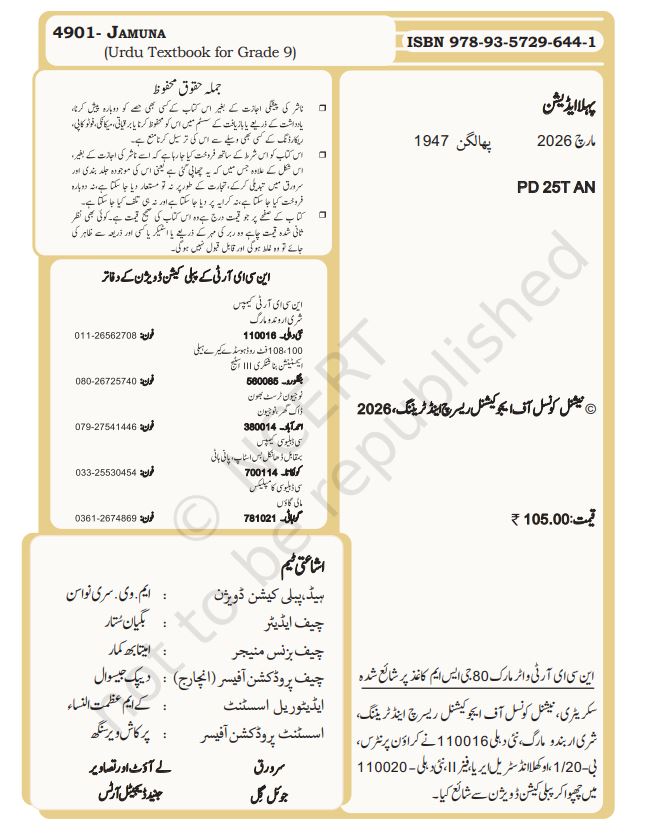 4901- JAMUNA
(Urdu Textbook for Grade 9)
ISBN 978-93-5729-644-1
جملہ حقوق محفوظ
❒ ناشر کی پیشگی اجازت کے بغیر اس کتاب کے کسی بھی حصے کو دوبارہ پیش کرنا،
یادداشت کے ذریعے بازیافت کے سسٹم میں اس کو محفوظ کرنا یا برقیاتی، میکانکی، فوٹو کاپی،
ریکارڈنگ کے کسی بھی وسیلے سے اس کی ترسیل کرنا منع ہے۔
❒ اس کتاب کو اس شرط کے ساتھ فروخت کیا جا رہا ہے کہ اسے ناشر کی اجازت کے بغیر،
اس شکل کے علاوہ جس میں کہ یہ چھاپی گئی ہے یعنی اس کی موجودہ جلد بندی اور
سرورق میں تبدیلی کر کے، تجارت کے طور پر نہ تو مستعار دیا جا سکتا ہے، نہ دوبارہ
فروخت کیا جا سکتا ہے، نہ کرایہ پر دیا جا سکتا ہے اور نہ ہی تلف کیا جا سکتا ہے۔
❒ کتاب کے صفحے پر جو قیمت درج ہے وہ اس کتاب کی صحیح قیمت ہے۔ کوئی بھی نظر
ثانی شدہ قیمت چاہے وہ ربر کی مہر کے ذریعے یا اسٹیکر یا کسی اور ذریعہ سے ظاہر کی
جائے تو وہ غلط ہوگی اور قابل قبول نہیں ہوگی۔
این سی ای آر ٹی کے پبلی کیشن ڈویژن کے دفاتر
این سی ای آر ٹی کیمپس
شری اروندو مارگ
نئی دہلی۔ 110016 فون: 011-26562708
108،100 فٹ روڈ ہوسڈے کیرے ہیلی
ایکسٹینشن بناشنکری III اسٹیج
بنگلورو۔ 560085 فون: 080-26725740
نوجیون ٹرسٹ بھون
ڈاک گھر، نوجیون
احمدآباد۔ 380014 فون: 079-27541446
سی ڈبلیو سی کیمپس
بمقابل ڈھانکل بس اسٹاپ، پانی ہاٹی
کولکاتا۔ 700114 فون: 033-25530454
سی ڈبلیو سی کامپلیکس
مالی گاؤں
گوہاٹی۔ 781021 فون: 0361-2674869
اشاعتی ٹیم
ہیڈ، پبلی کیشن ڈویژن : ایم۔وی۔سری نواسن
چیف ایڈیٹر : بگیان ستار
چیف بزنس منیجر : امیتابھ کمار
چیف پروڈکشن آفیسر (انچارج) : دیپک جیسوال
ایڈیٹوریل اسسٹنٹ : کے ایم عظمت النساء
اسسٹنٹ پروڈکشن آفیسر : پرکاش ویر سنگھ
سرورق لے آؤٹ اور تصاویر
جوئل گل جنید ڈیجیٹل آرٹس
پہلا ایڈیشن
مارچ 2026 پھالگن 1947
PD 25T AN
© نیشنل کونسل آف ایجوکیشنل ریسرچ اینڈ ٹریننگ، 2026
قیمت: ₹ 105.00
این سی ای آر ٹی واٹر مارک 80 جی ایس ایم کاغذ پر شائع شدہ
سکریٹری، نیشنل کونسل آف ایجوکیشنل ریسرچ اینڈ ٹریننگ،
شری اربندو مارگ، نئی دہلی 110016 نے کراؤن پرنٹرس،
بی-1/20، اوکھلا انڈسٹریل ایریا، فیز II، نئی دہلی - 110020
میں چھپوا کر پبلی کیشن ڈویژن سے شائع کیا۔
© NCERT
not to be republished